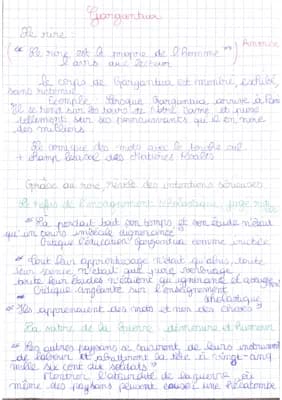 Gargantua
Le rire :
" Le rire est le propre de l'homme " Annonce
avis aux lecteurs
Le corps de Gargantua est montré, exhibé,
sans retenue
Exemple lorsque Gargantua arrive à Paris
Il se rend sur les tours de Notre Dame et urine
tellement sur ses poursuivants qu'il en noie
des milliers
Le comique des mots avec le torche cul
+ champ lexical des matières fécales
Grâce au rire, révèle des intentions sérieuses
Le refus de l'enseignement scholastique, page
" Il perdait tout son temps et son étude n'était
qu'un cours
Critique l'éducation Gargantua comme
" Tout leur apprentissage n'était qu'abus, toute
leur science n'était que
toute leur études n'étaient qu'ignorance
Critique de l'enseignement
scholastique
" Ils apprennent des mots et non des choses "
La satire de la Guerre démesure et humour
" Les autres paysans se saisirent de leurs instruments
de labour et abattirent la tête à vingt-cinq
mille six cent dix soldats "
Montrer l'absurdité de la guerre où
même des paysans peuvent causer une hécatombe